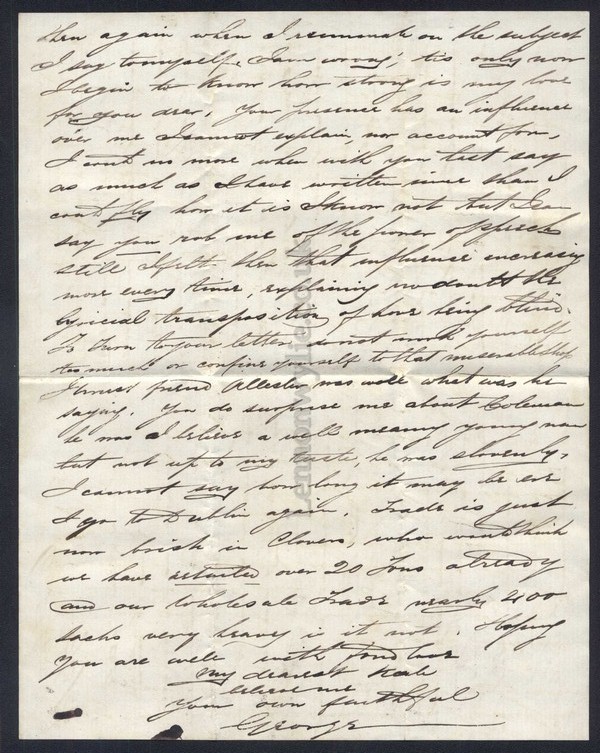 then again when I ruminate on the subject
I say to myself, I am wrong; tis only now
I begin to know how strong is my love
for you dear, Your presence has an influence
over me I cannot explain, nor account for,
I can't no more when with you last say
as much as I have written since than I
can't fly how it is I know not but I can
say you rob me of the power of speech
still I felt then that influence increasing
more every time, explaining no doubt the
lyrical transposition of love being blind.
To turn to your letter, do not work yourself
too much or confine yourself to that miserable shop
friend Allester was well what was he
saying. You do surprise me about Coleman
he was I believe a well meaning young man
but not up to my taste, he was slovenly,
I cannot say how long it may be ere
I go to Dublin again. Trade is just
now brisk in Clovers, who would think
we have retailed over 20 Tons already
and our Wholesale Trade nearly 400
sacks very heavy is it not. Hoping
you are well with fond love
My dearest Kate
believe me
Your own faithful
George
Lennonwylie.co.uk